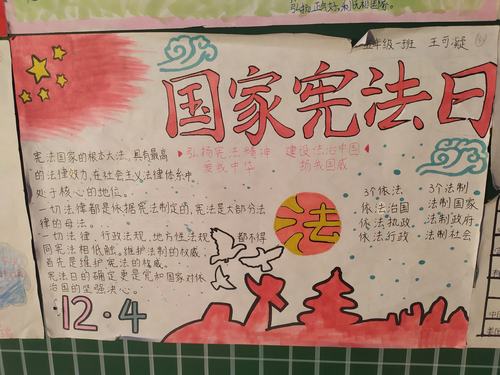 弘扬正能量,利民相国泰。
五年级一班 王可凝
国家宪法日
▶弘扬宪法精神 建设法治中国◀
爱我中华 扬我国威
宪法国家的根本大法,具有最高
的法律效力,在社会主义法律体系中
处于核心的地位。
一切法律都是依据宪法制定的,宪法是大部分法
律的母法。..
一切法律,行政规,地方性法规 都不得
同宪法相低触。维护法制的权威;
首先是维护宪法的权威。
宪法日的确定更是党和国家对依
法治国的坚强决心。
法
3个依法 3个法制
依法治国 法制国家
依法执政 法制政府
依法行政 法制社会
12·4